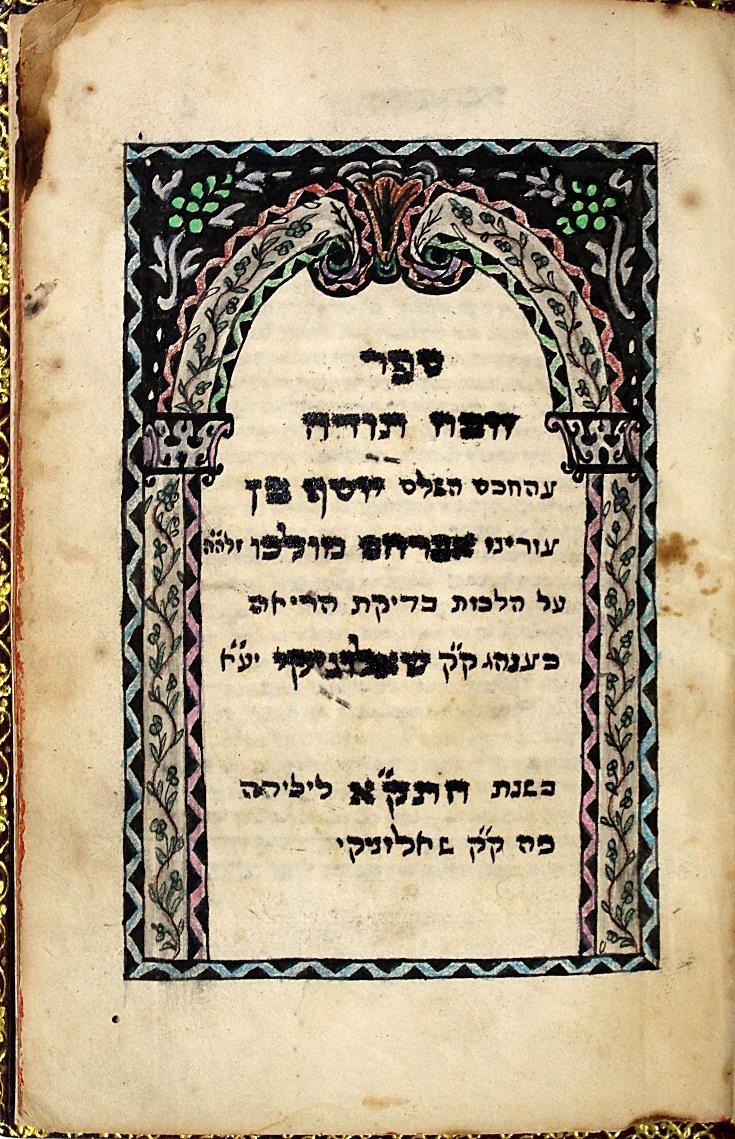 ספר
זבח תודה
מהחכם השלם יוסף בן
מורינו אברהם מולכו זלה״ה
על הלכות בדיקת הריאה
כמנהג ק״ק שאלוניקי יע״א
בשנת התק״א ליצירה
פה ק״ק שאלוניקי